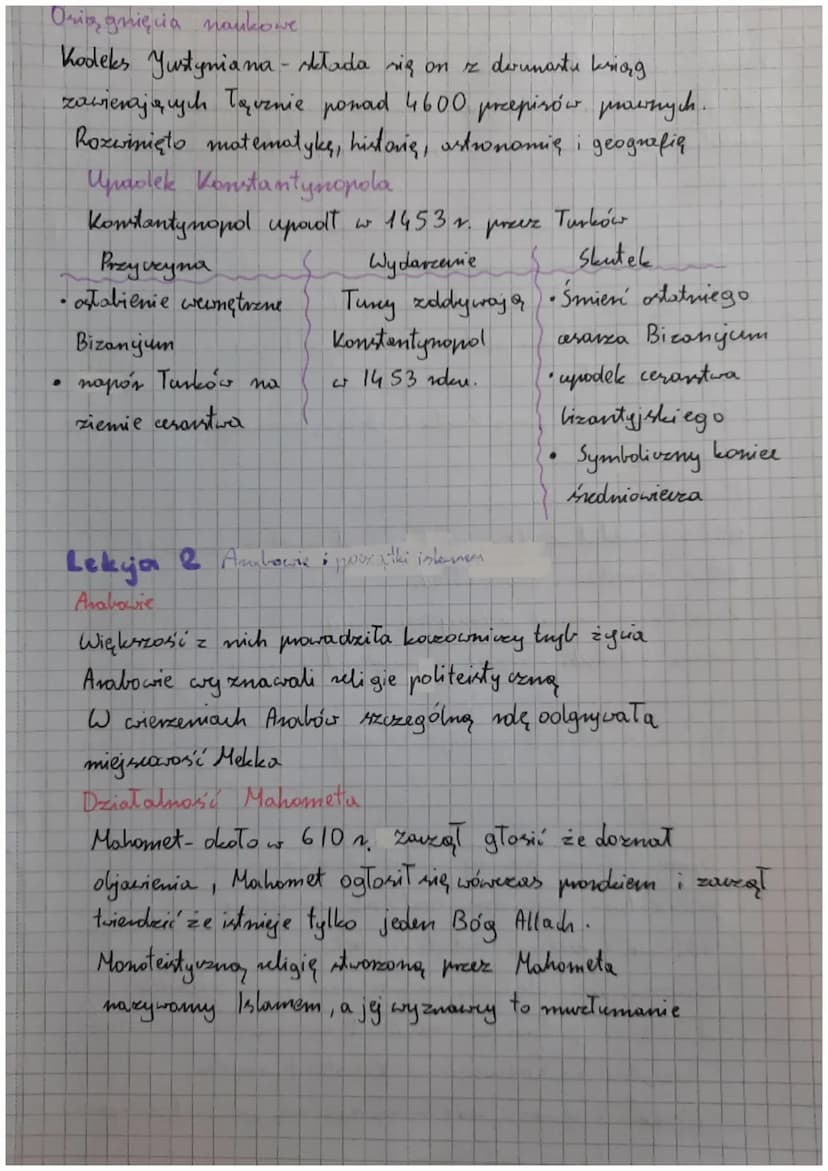 Osiągnięcia naukowe
Kodeks Justyniana - składa się on z dwunastu ksiąg
zawierających łącznie ponad 4600 przepisów prawnych.
Rozwinięto matematykę, historię, astronomię i geografię
Upadek Konstantynopola
Konstantynopol upadł w 1453 r. przez Turków
Przyczyna
• osłabienie wewnętrzne
Bizancjum
• napór Turków na
ziemie cesarstwa
Wydarzenie
Turcy zdobywają
Konstantynopol
w 1453 roku.
Skutek
• Śmierć ostatniego
cesarza Bizancjum
• upadek cesarstwa
bizantyjskiego
• Symboliczny koniec
średniowiecza
Lekcja 2 Arabowie i początki islamu
Arabowie
Większość z nich prowadziła koczowniczy tryb życia
Arabowie wyznawali religie politeistyczną
W wierzeniach Arabów szczególną rolę odgrywała
miejscowość Mekka
Działalność Mahometa
Mahomet - około w 610 r. zaczął głosić że doznał
objawienia, Mahomet ogłosił się wówczas prorokiem i zaczął
twierdzić że istnieje tylko jeden Bóg Allach.
Monoteistyczną religię stworzoną przez Mahometa
nazywamy Islamem, a jej wyznawcy to muzłumanie